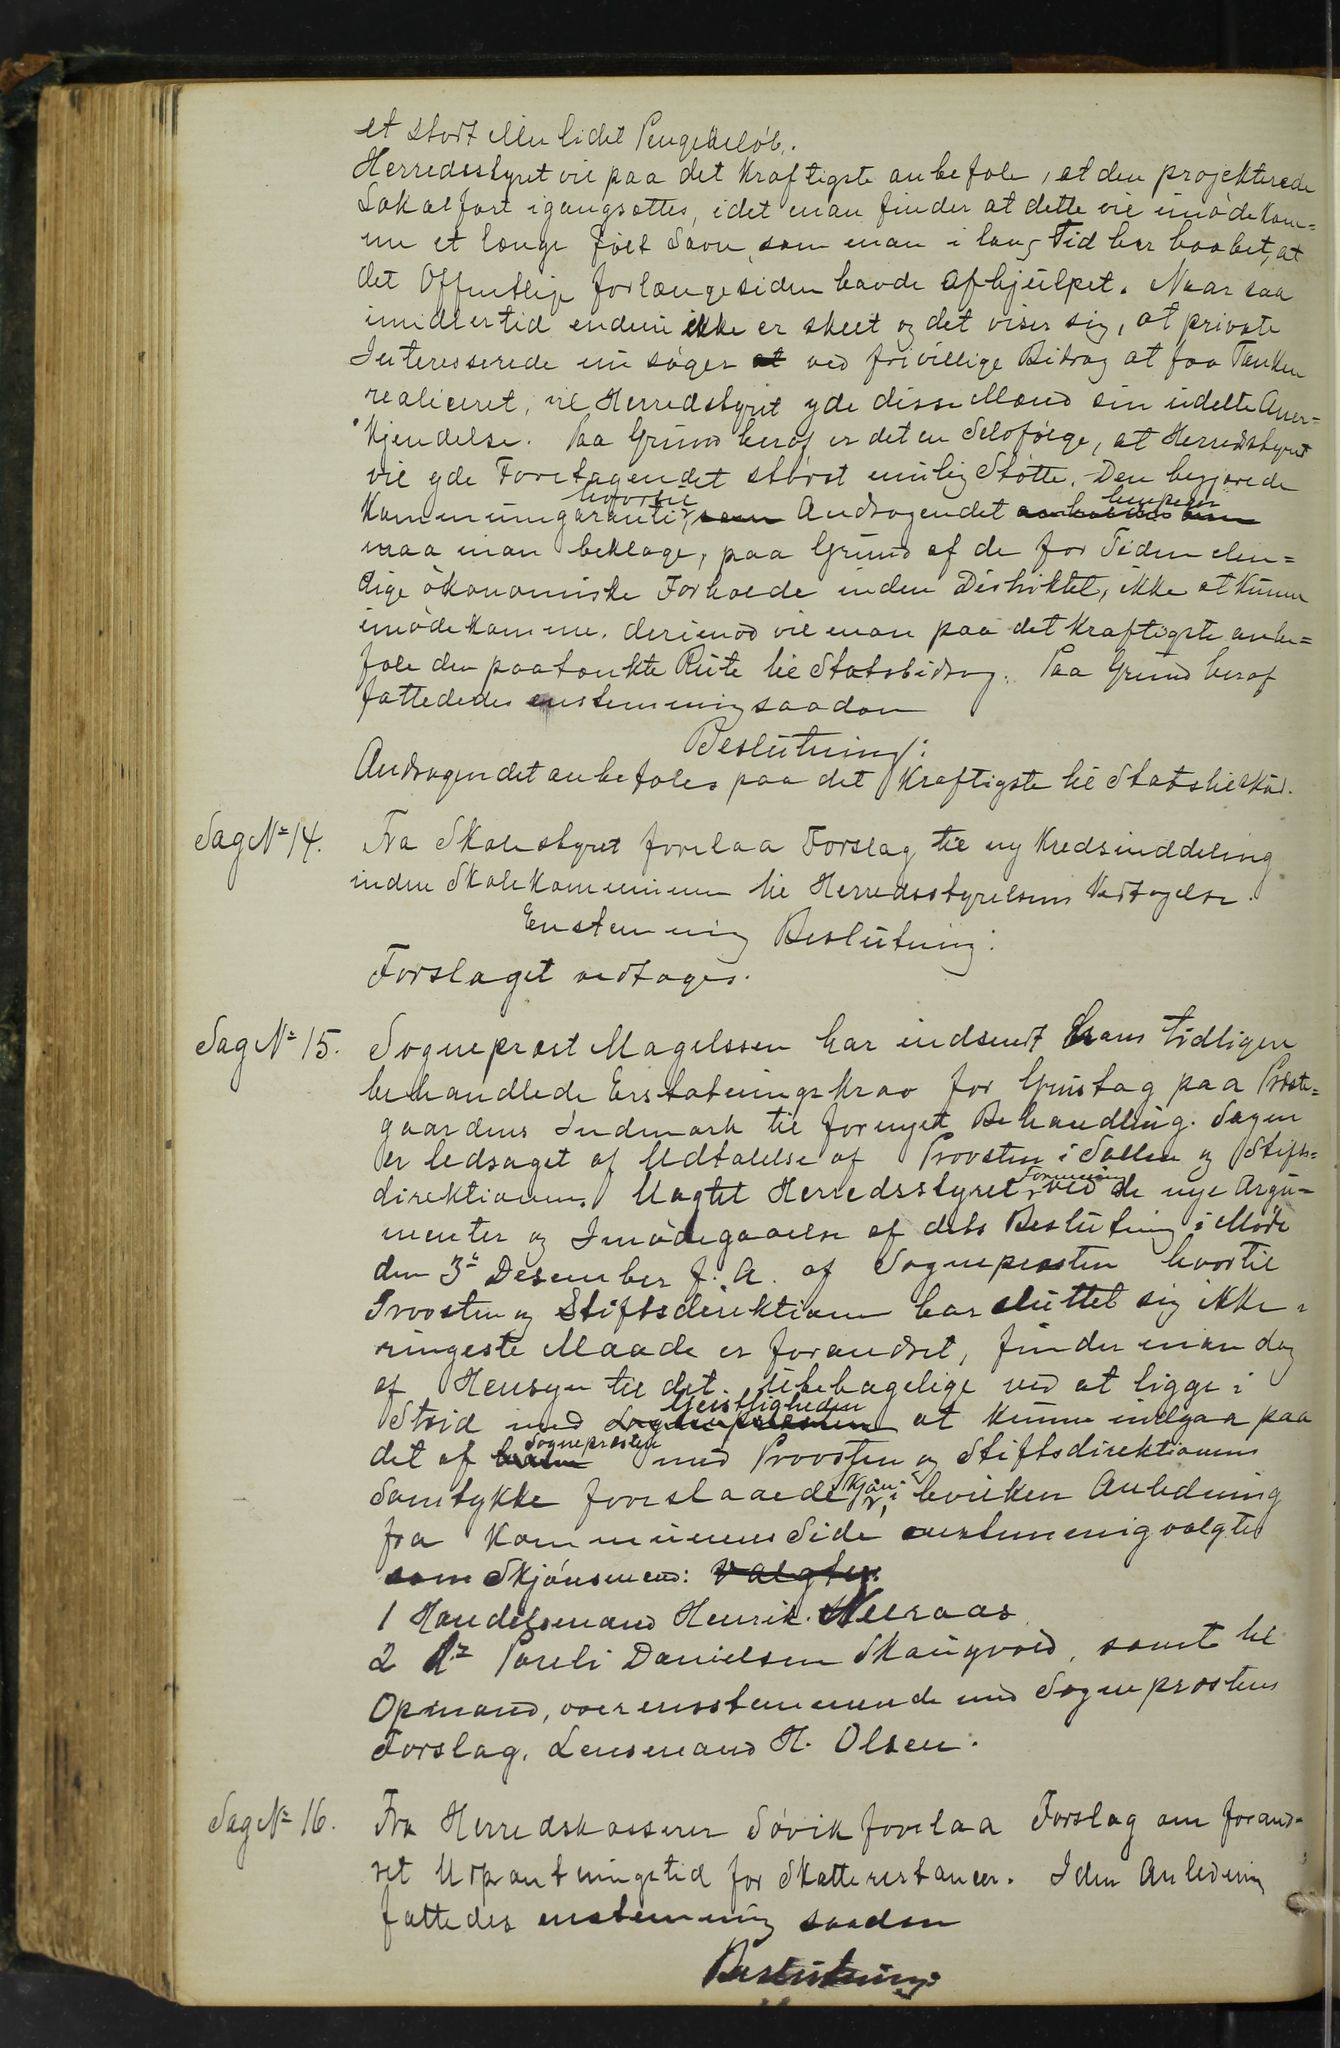 et stort eller lidet Pengebeløb.
Herredsstyret vil paa det kraftigste anbefale, at den projekterede
Lokalfart igangsættes, idet man finder at dette vil imødekom=
me et længe følt Savn, som man i lang Tid har haabet, at
det Offentlige forlængesiden havde afhjulpet. Naar saa
imidlertid endnu ikke er skeet og det viser sig, at private
Interesserede nu søger at ved frivillige Bidrag at faa Tanken
realiceret, vil Herredstyret yde disse Mænd sin udelte Aner=
kjendelse. Paa Grund heraf er det en Selvfølge, at Herredsstyret
vil yde Foretagendet størst mulig Støtte. Den begjærede
hvortil henpeger
Kommungaranti, som Andragendet
maa man beklage, paa Grund af de for Tiden elen=
dige økonomiske Forholde inden Distriktet, ikke at kunne
imødekomme. Derimod vil man paa det kraftigste anbe=
fale den paatænkte Rute til Statsbidrag. Paa Grund heraf
fattededes enstemmig saadan
Beslutning:
Andragendet anbefales paa det kraftigste til Statstilskud.
Sag No 14. Fra Skolestyret forelaa Forslag til ny Kredsinddeling
inden Skolekommunen til Herredsstyrelsens Vedtagelse.
Enstemmig Beslutning:
Forslaget vedtages.
Sag No 15. Sogneprest Magelssen har indsendt hans tidligere
behandlede Erstatningskrav for Grustag paa Præste=
gaardens Indmark til fornyet Behandling. Sagen
er ledsaget af Udtalelse af Provsten i Salten og Stifts=
direktionen. Uagtet Herredsstyrets Formening ved de nye Argu=
menter og Imødegaaelse af dets Beslutning i Møde
den 3die Desember f. A. af Sognepresten hvortil
Provsten og Stiftsdirektionen har sluttet sig ikke i
ringeste Maade er forandret, finder man dog
af Hensyn til det ubehagelige ved at ligge i
Geistligheden
Strid med Sognepræsten at kunne indgaa paa
Sognepræsten
det af med Provsten og Stiftsdirektionens
Samtykke foreslaaede Skjøn, i hvilken Anledning
fra Kommunens Side enstemmig valgtes
som Skjønsmænd: valgtes:
1 Handelsmand Henrik
2 Do Pareli Danielsen Skaugvold, samt til
Opmand, overensstemmende med Sognepræstens
Forslag, Lensmand H. Olsen.
Sag No 16. Fra Herredskasserer Søvik forelaa Forslag om forand=
ret Udpantningstid for Skatterestancer. I den Anledning
fattedes enstemmig saadan
Beslutning: